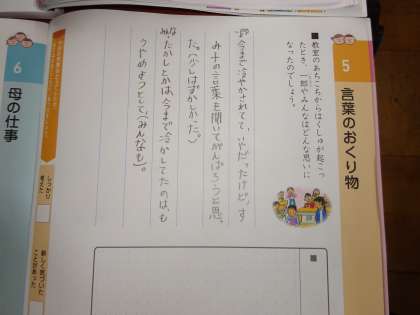 5
言葉のおくり物
■教室のあちこちからはくしゅが起こっ
たとき、一郎やみんなはどんな思いに
なったのでしょう。
一郎 今まで冷やかされてて、いやだったけど、す
み子の言葉を聞いてがんばろうと思っ
た。(少しはずかしかった。)
みんな たかしとかは、今まで冷かしてたのは、も
うやめようとして、(みんなも)。
しっかり
考えた
新しく気づいた
ことがあった
6
母の仕事